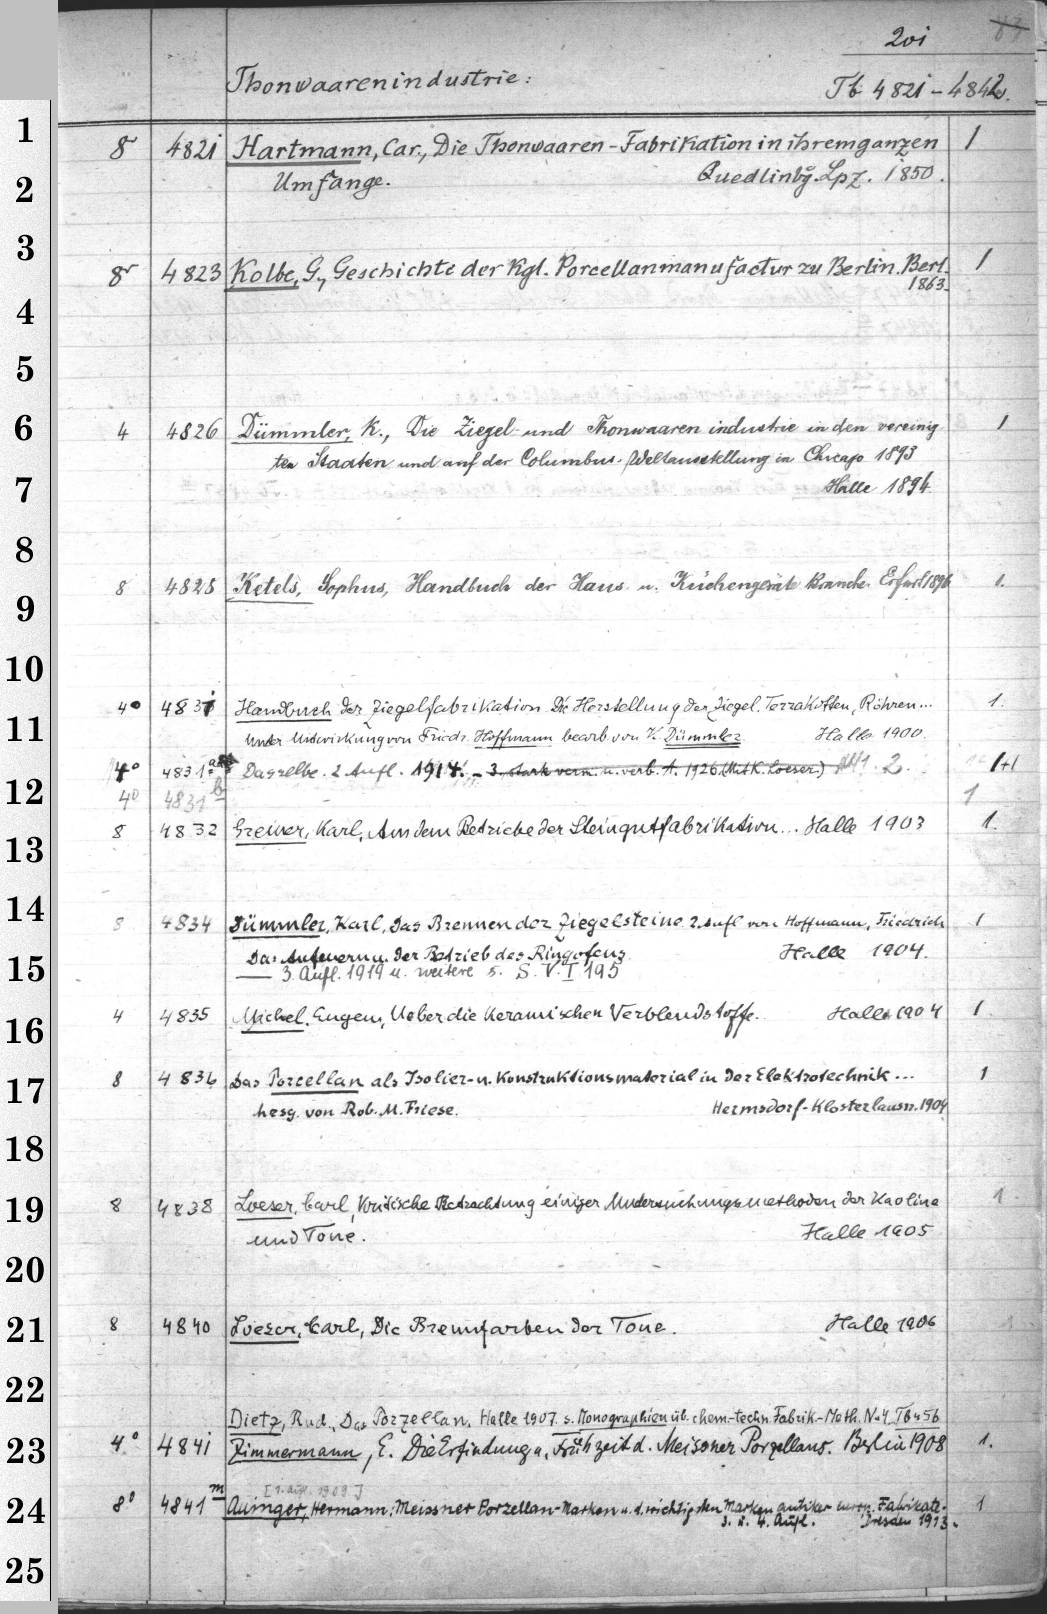 201 83
Thonwaarenindustrie: Tb 4821-4842.
1
8 4821 Hartmann, Car., Die Thonwaaren-Fabrikation in ihrem ganzen 1
2
Umfange. Quedlinbg. Lpz. 1850.
3
8 4823 Kolbe, G., Geschichte der Kgl. Porcellanmanufactur zu Berlin. Berl. 1
1863.
4
5
6
4 4826 Dümmler, K., Die Ziegel- und Thonwaarenindustrie in den vereinig 1
ten Staaten und auf der Columbus-Weltausstellung in Chicago 1893
7
Halle 1894.
8
8 4828 Ketels, Sophus, Handbuch der Haus- u. Küchengeräte Branche. Erfurt 1896 1.
9
10
4° 4831 Handbuch der Ziegelfabrikation. Die Herstellung der Ziegel, Terrakotten, Röhren... 1.
11
unter Mitwirkung von Friedr. Hoffmann bearb. von K. Dümmler. Halle 1900.
4° 4831a Dasselbe. 2. Aufl. 1914. - 3. stark verm. u. verb. A. 1926. (Mit K. Loeser.) 2. 1+1
12
4° 4831b 1
8 4832 Greiner, Karl, Aus dem Betriebe der Steingutfabrikation... Halle 1903 1.
13
14
8 4834 Dümmler, Karl, Das Brennen der Ziegelsteine 2. Aufl von Hoffmann, Friedrich 1
Das Anfeuern u. der Betrieb des Ringofens. Halle 1904.
15
— 3. Aufl. 1919 u. weitere s. S. V. I 195
16
4 4835 Michel, Eugen, Ueber die Keramischen Verblendstoffe. Halle 1904 1.
17
8 4836 Das Porcellan als Isolier- u. Konstruktionsmaterial in der Elektrotechnik... 1
hrsg. von Rob. M. Friese. Hermsdorf-Klosterlausn. 1904
18
19
8 4838 Loeser, Carl, Kritische Betrachtung einiger Untersuchungsmethoden der Kaoline 1
und Tone. Halle 1905
20
21
8 4840 Loeser, Carl, Die Brennfarben der Tone. Halle 1906 1
22
Dietz, Rud., Das Porzellan. Halle 1907. s. Monographien üb. chem.-techn. Fabrik.-Meth. No 4 Tb 456
23
4° 4841 Zimmermann, E. Die Erfindung u. Frühzeit d. Meissner Porzellans. Berlin 1908 1.
[1. Aufl. 1909]
24
8° 4841m Auinger, Hermann: Meissner Porzellan-Marken u. d. wichtigsten Marken antiker europ. Fabrikate. 1
3. u. 4. Aufl. Dresden 1913.
25